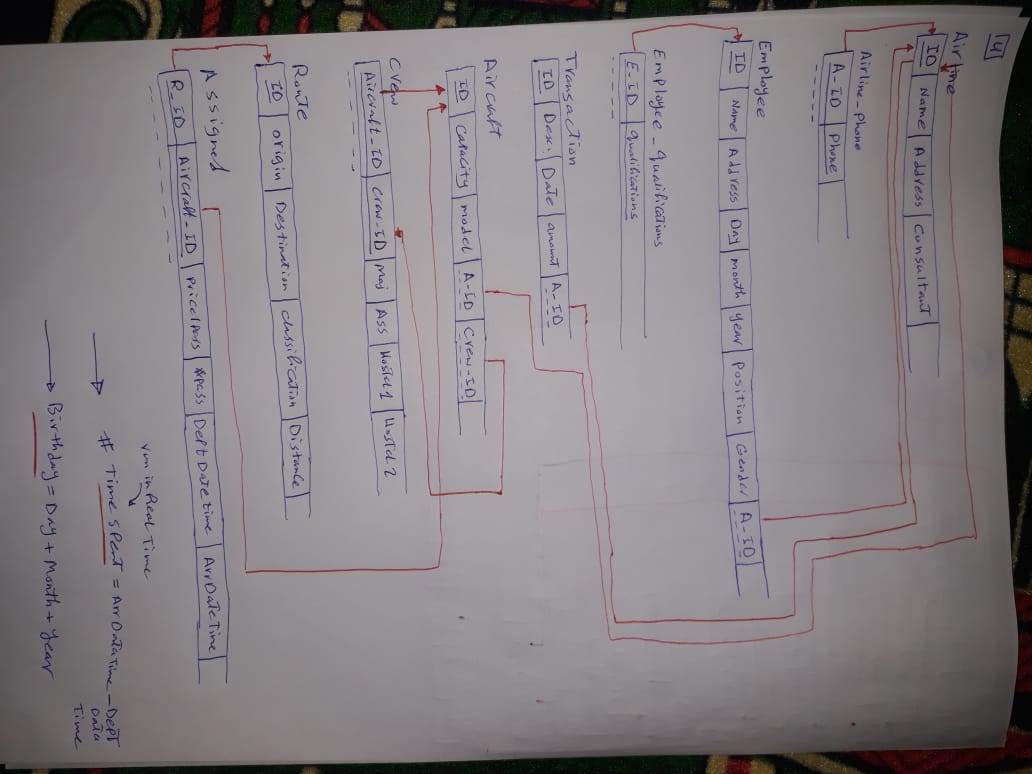 4
Airline
ID Name Address Consultant
Airline-Phone
A-ID Phone
Employee
ID Name Address Day month year Position Gender A-ID
Employee-qualifications
E-ID qualifications
Transaction
ID Desc. Date amount A-ID
Aircraft
ID Capacity model A-ID Crew-ID
Crew
Aircraft-ID Crew-ID Maj Ass Hostel1 Hostel2
Route
ID origin Destination classification Distance
Assigned
R-ID Aircraft-ID Price/Pass #Pass DeptDatetime ArrDateTime
run in Real Time
# Time sPent = ArrDataTime - DePT Data Time
Birthday = Day + Month + year